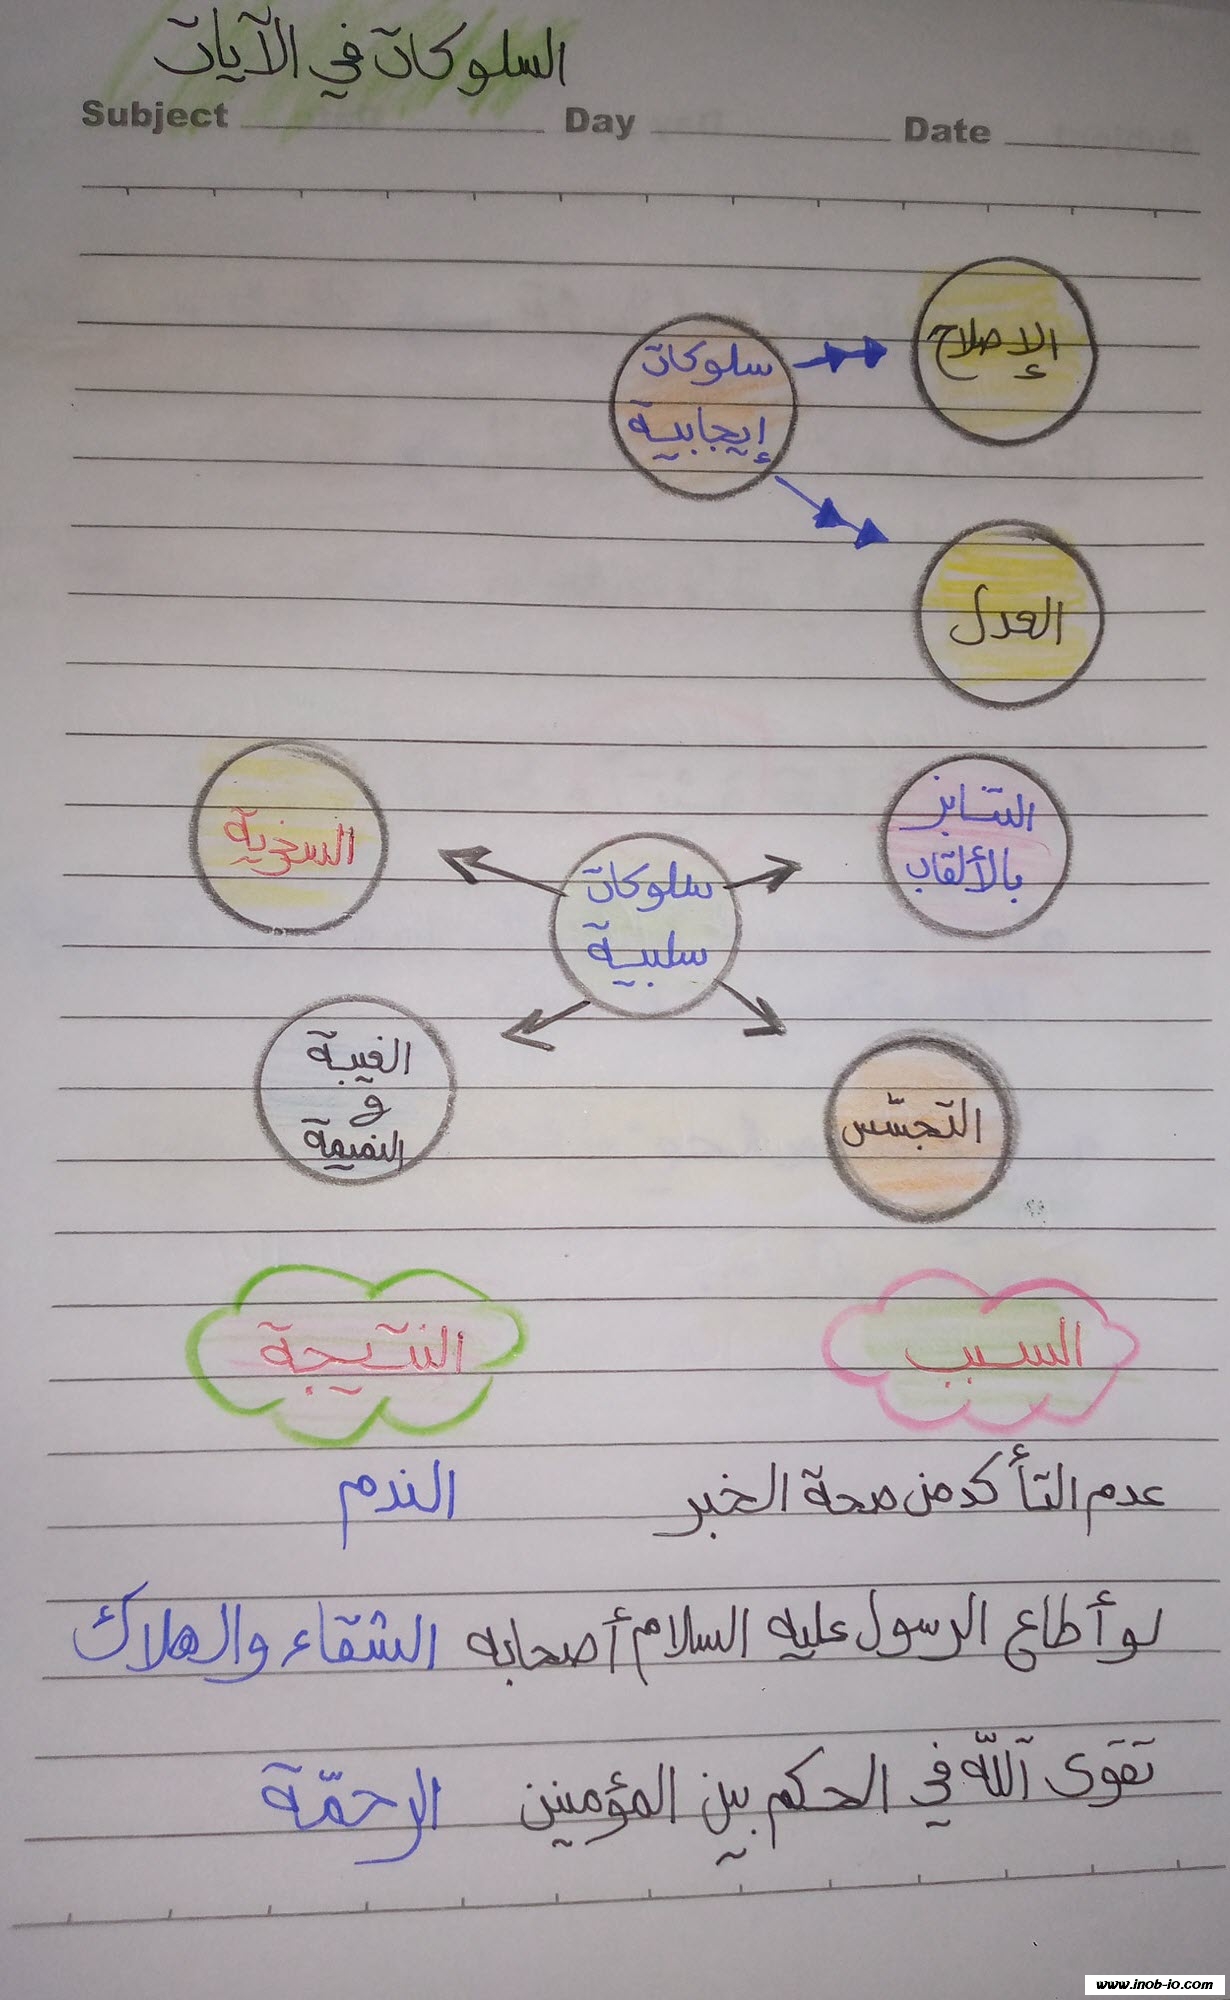 السلوكات في الآيات
Subject Day Date
الإصلاح
سلوكات
إيجابية
العدل
التنابز
بالألقاب
السخرية
سلوكات
سلبية
الغيبة
و
النميمة
التجسّس
السبب
النتيجة
عدم التأكد من صحة الخبر
الندم
لو أطاع الرسول عليه السلام أصحابه
الشقاء والهلاك
تقوى اللّه في الحكم بين المؤمنين
الرحمّة
www.inob-io.com